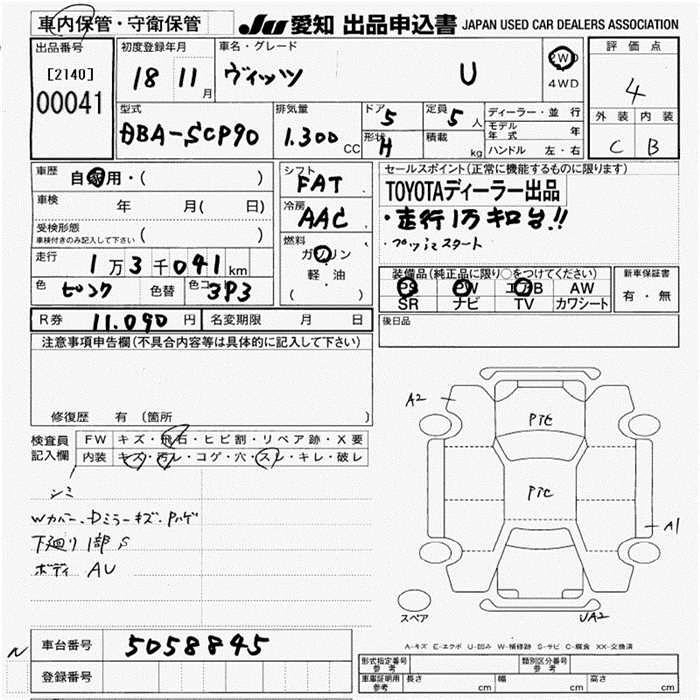 車内保管・守衛保管
JU 愛知 出品申込書 JAPAN USED CAR DEALERS ASSOCIATION
出品番号
[2140]
00041
初度登録年月
18 11 月
車名・グレード
ヴィッツ U
2WD
4WD
評価点
4
外装 内装
C B
型式
DBA-SCP90
排気量
1.300 CC
ドア
5
形状
H
定員
5 人
積載
kg
ディーラー・並行
モデル年式 年
ハンドル 左・右
車歴
自家用・( )
車検
年 月( 日)
受検形態
車検付きのみ記入して下さい ( )
走行
1万3千041km
色 ピンク 色替 色コ 3P3
シフト
FAT
冷房
AAC
燃料
ガソリン
軽・油
( )
セールスポイント(正常に機能するものに限ります)
TOYOTAディーラー出品
・走行1万キロ台!!
・プッシュスタート
装備品(純正品に限り○をつけてください)
PS PW エアB AW
SR ナビ TV カワシート
新車保証書
有・無
R券 11.090 円 名変期限 月 日
後日品
注意事項申告欄(不具合内容等は具体的に記入して下さい)
修復歴 有 (箇所 )
検査員記入欄
FW キズ・飛石・ヒビ割・リペア跡・X要
内装 キズ・汚レ・コゲ・穴・スレ・キレ・破レ
シミ
Wカバー、Dミラーキズ、Pハゲ
下廻り1部S
ボディ AU
A2
PTC
PTC
A1
スペア
UA2
A-キズ E-エクボ U-凹み W-補修跡 S-サビ C-腐食 XX-交換済
N
車台番号 5058845
登録番号
形式指定番号 参考
類別区分番号 参考
車庫証明用 参考 長さ cm 幅 cm 高さ cm